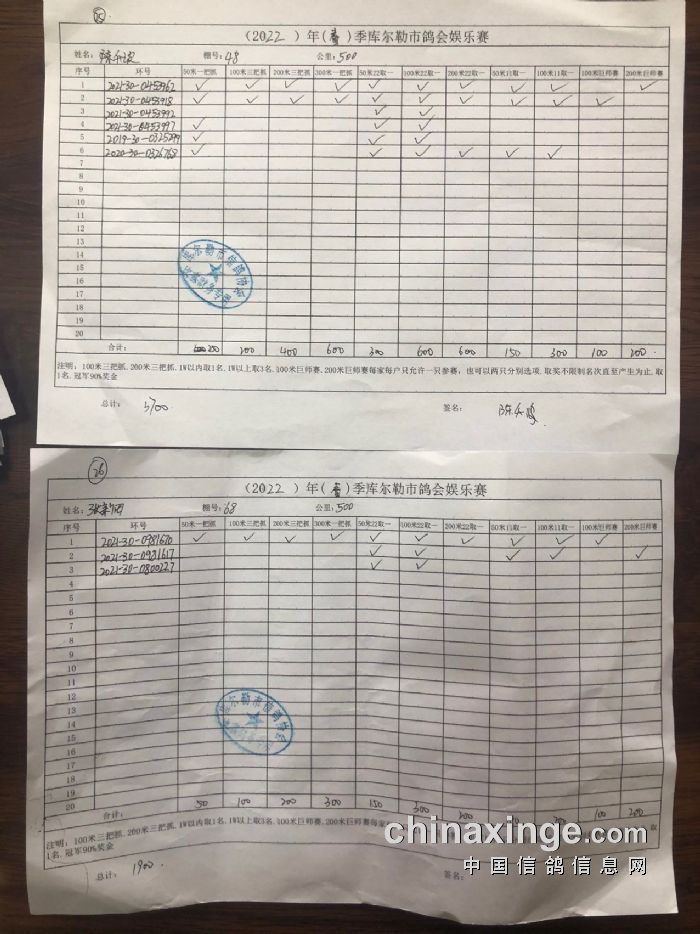 25
(2022)年(春)季库尔勒市鸽会娱乐赛
姓名: 棚号:48 公里:500
序号 环号 50米一把抓 100米三把抓 200米三把抓 300米一把抓 50米22取一 100米22取一 200米22取一 50米11取一 100米11取一 100米巨师赛 200米巨师赛
1 2021-30-0453962 ✓ ✓ ✓ ✓ ✓ ✓ ✓ ✓ ✓ ✓
2 2021-30-0453918 ✓ ✓ ✓ ✓ ✓ ✓ ✓ ✓ ✓ ✓
3 2021-30-0453992 ✓ ✓
4 2021-30-0453997 ✓ ✓ ✓
5 2019-30-0325299 ✓ ✓ ✓
6 2020-30-0326768 ✓ ✓ ✓ ✓ ✓ ✓
7
8
9
10
11
12
13
14
15
16
17
18
19
20
库尔勒市信鸽协会
合计: 250 200 400 600 300 600 600 150 300 100 200
注明:100米三把抓,200米三把抓,1W以内取1名,1W以上取3名,100米巨师赛,200米巨师赛每家每户只允许一只参赛,也可以两只分别选项.取奖不限制名次直至产生为止.取
1名.冠军90%奖金
总计: 3700 签名:
26
(2022)年(春)季库尔勒市鸽会娱乐赛
姓名: 棚号:68 公里:500
序号 环号 50米一把抓 100米三把抓 200米三把抓 300米一把抓 50米22取一 100米22取一 200米22取一 50米11取一 100米11取一 100米巨师赛 200米巨师赛
1 2021-30-0981670 ✓ ✓ ✓ ✓ ✓ ✓ ✓ ✓ ✓ ✓
2 2021-30-0981617 ✓ ✓ ✓ ✓ ✓
3 2021-30-0800227 ✓ ✓
4
5
6
7
8
9
10
11
12
13
14
15
16
17
18
19
20
库尔勒市信鸽协会
合计: 50 100 200 300 150 300 200 200 100 200
注明:100米三把抓,200米三把抓,1W以内取1名,1W以上取3名,100米巨师赛,200米巨师赛每家 取
1名.冠军90%奖金
总计: 1900 签名:
chinaxinge.com
中国信鸽信息网